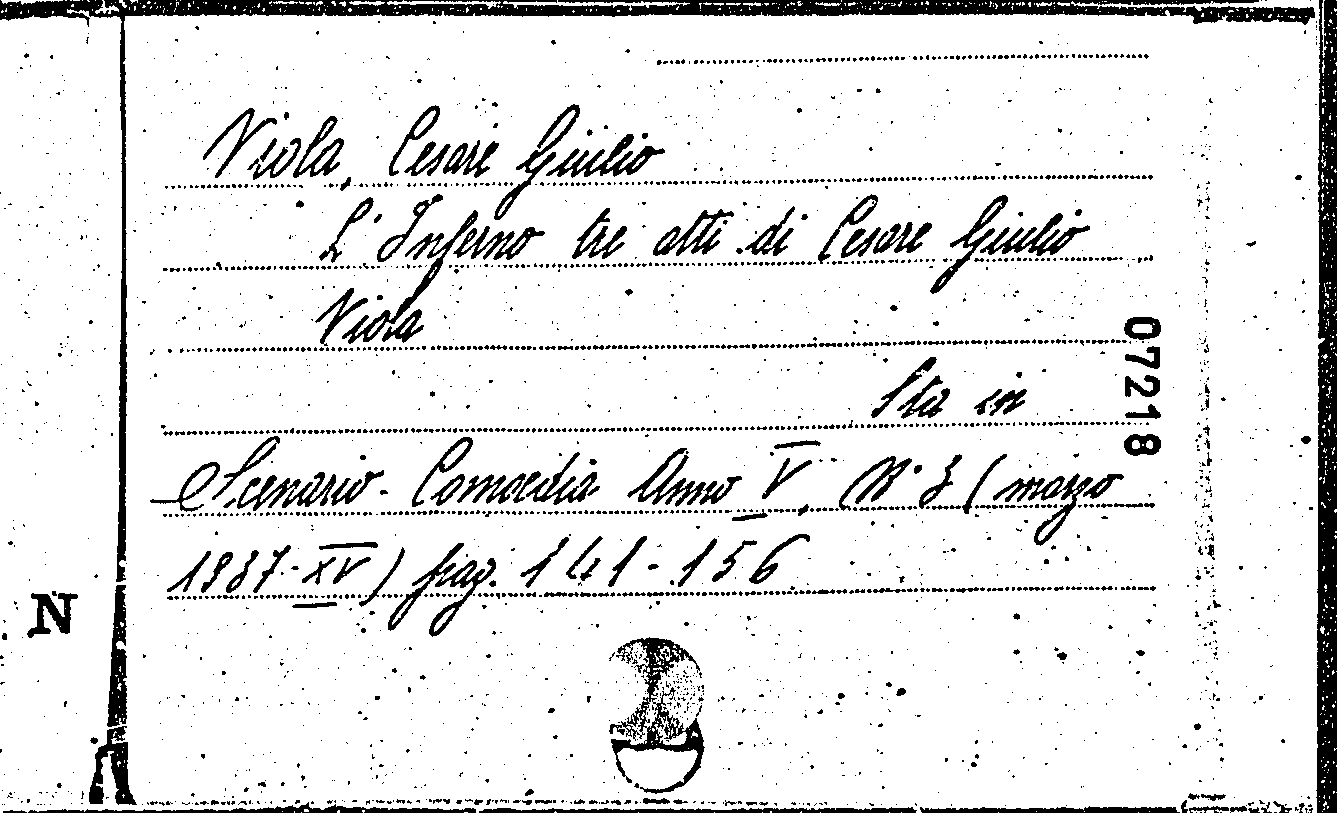 Viola, Cesare Giulio
L'Inferno tre atti di Cesare Giulio
Viola
Sta in
Scenario. Comoedia Anno V, N° 3 (marzo
1937-XV) pag. 141-156
07218
N